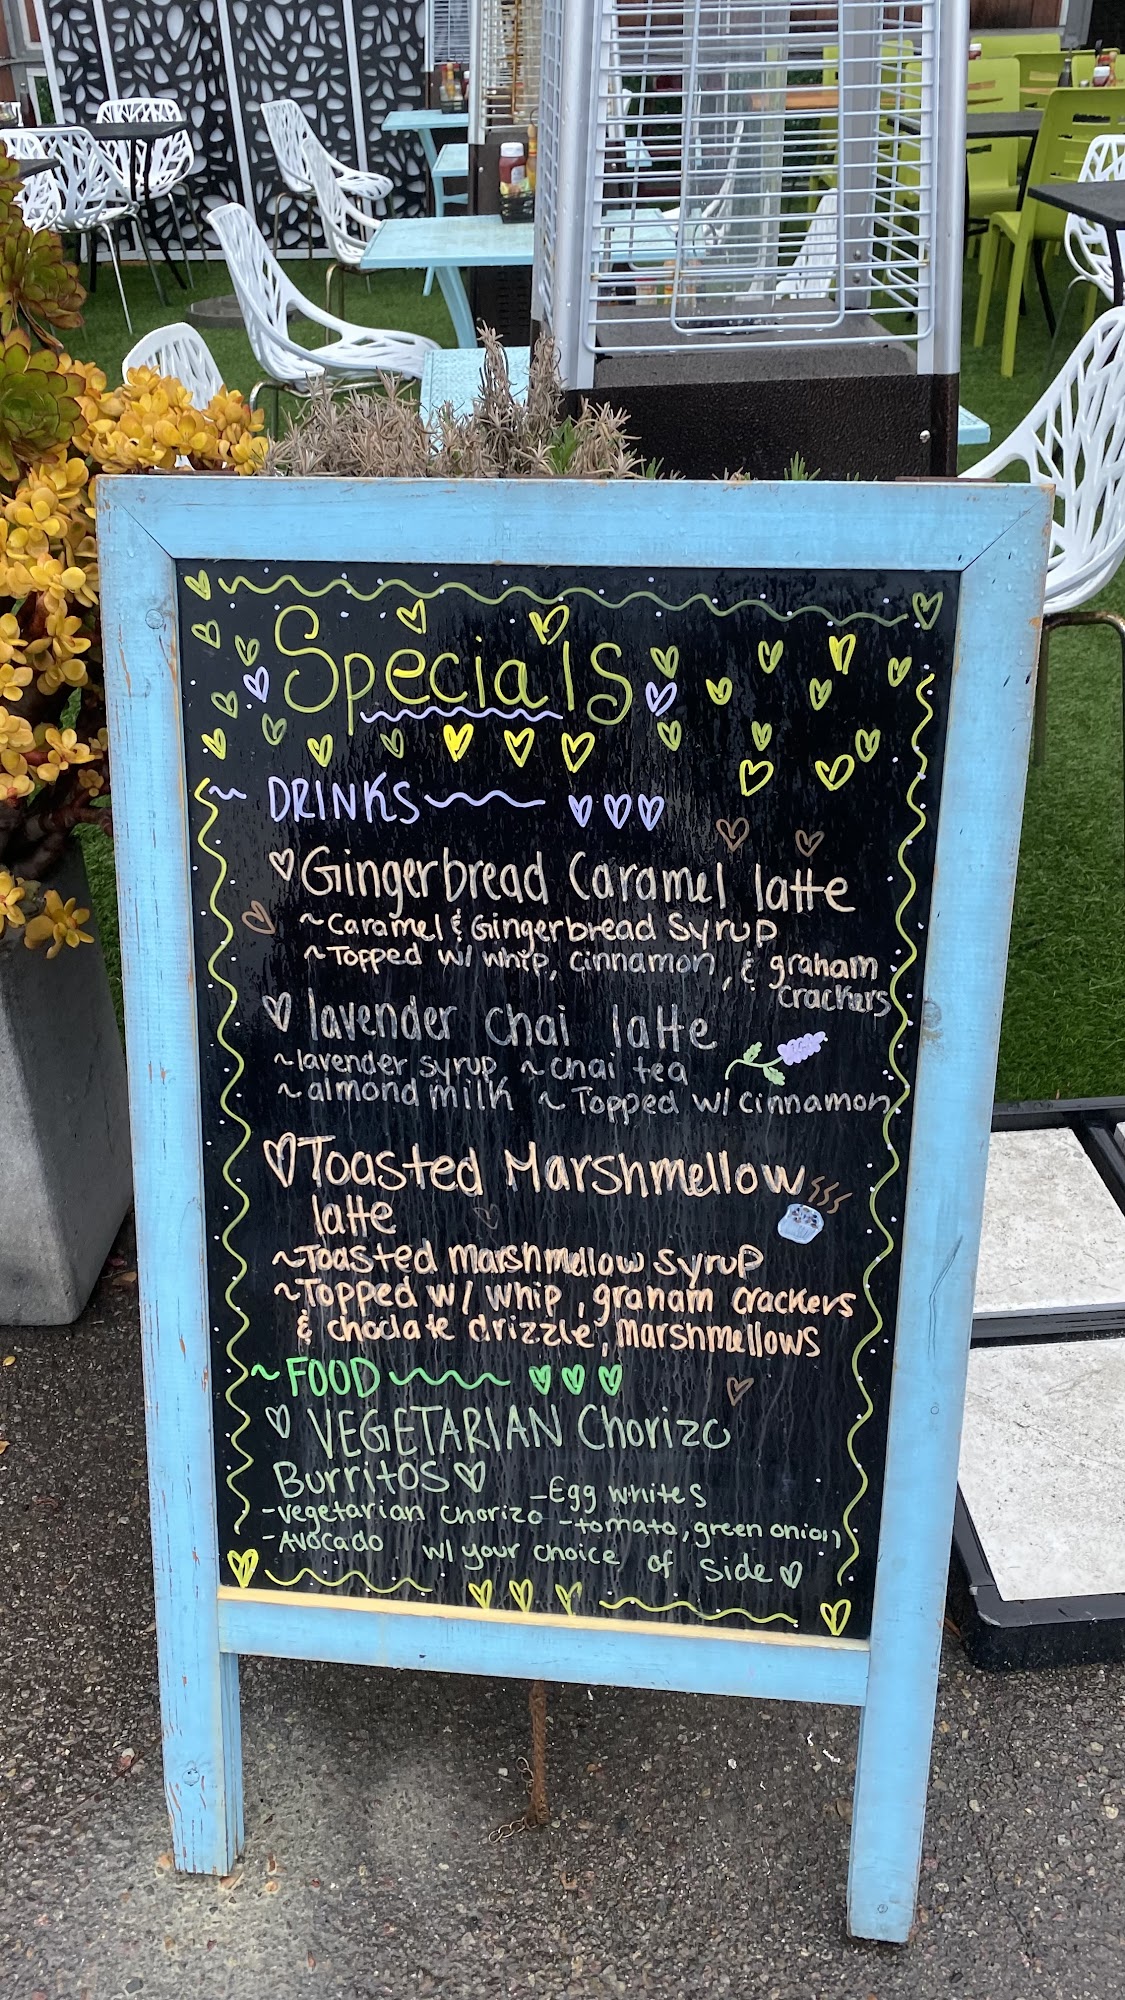 Specials
~ DRINKS
Gingerbread Caramel latte
~Caramel & Gingerbread Syrup
~Topped w/ whip, cinnamon, & graham
crackers
lavender chai latte
~lavender syrup ~chai tea
~almond milk ~ Topped w/ cinnamon
Toasted Marshmellow
latte
~Toasted marshmellow syrup
~Topped w/ whip, graham crackers
& choclate drizzle, marshmellows
~FOOD
VEGETARIAN Chorizo
Burritos
-Egg whites
-vegetarian chorizo -tomato, green onion
-Avocado w/ your choice of side